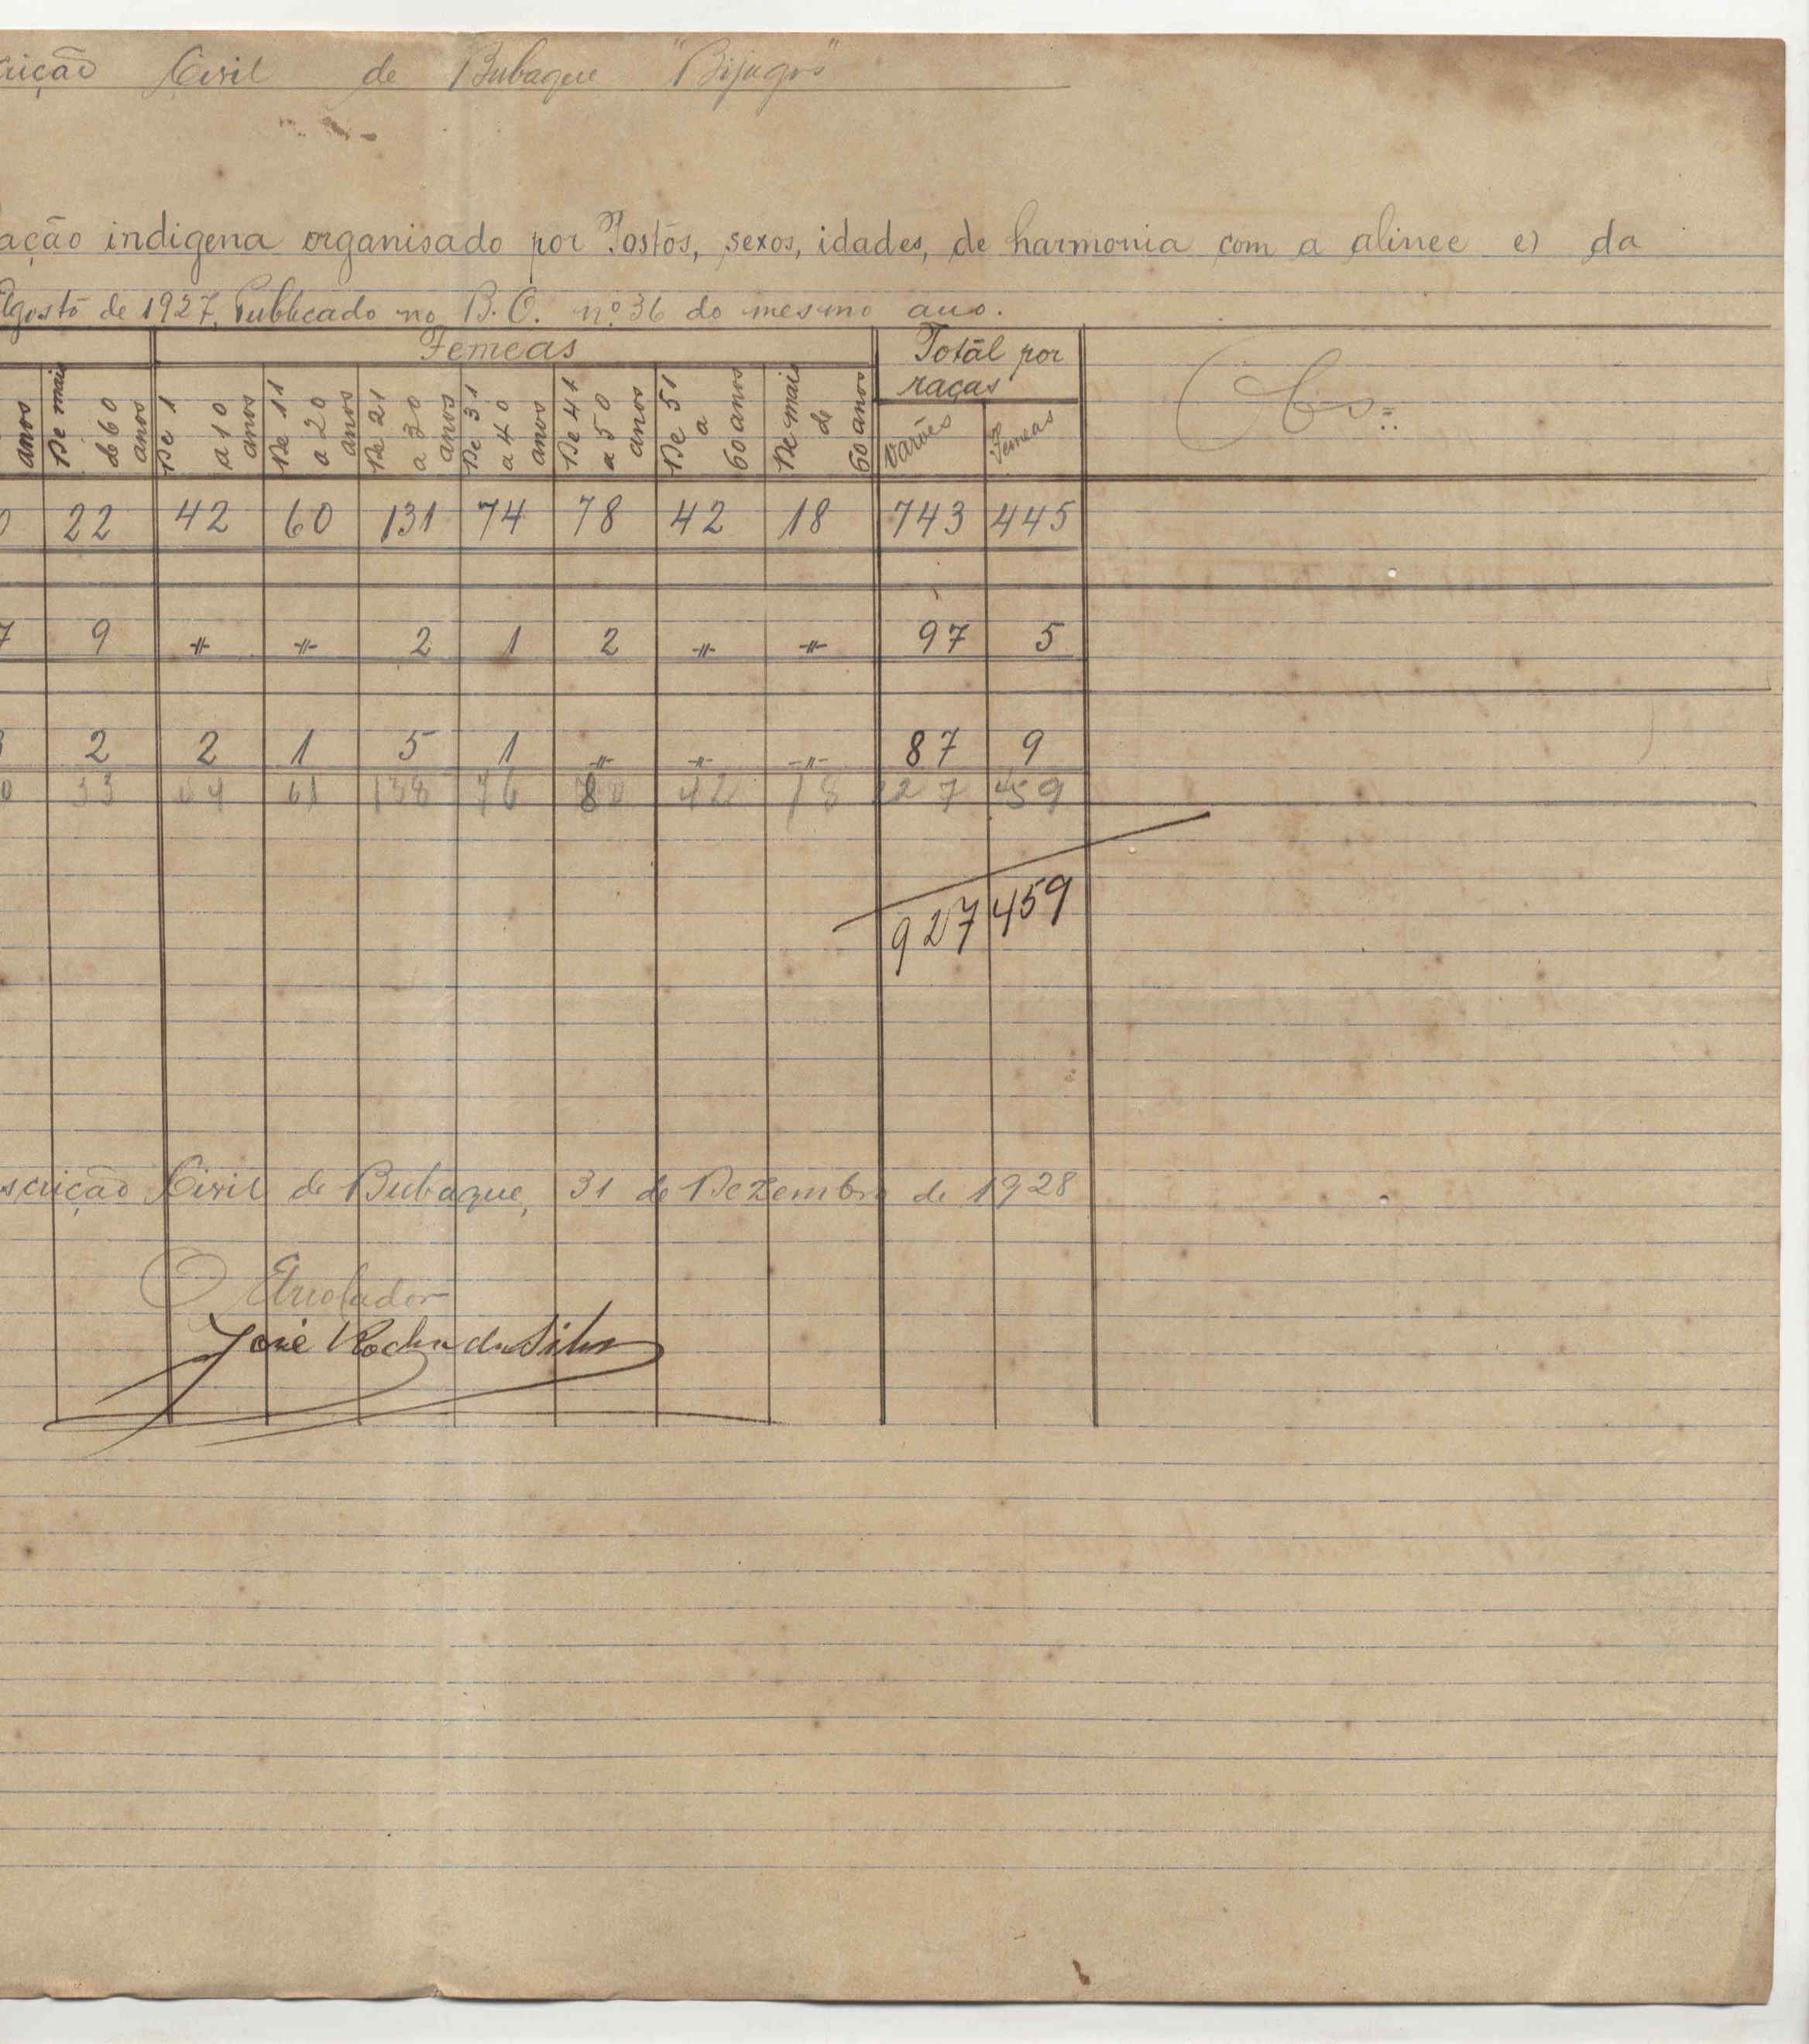 rição Civil de Bubaque "Bijagós"
ação indigena organisado por Postos, sexos, idades, de harmonia com a alinee e) da
Agosto de 1927, Publicado no B.O. nº 36 do mesmo ano.
Femeas
Totál por raças
Obs:
anos
De mais de 60 anos
De 1 a 10 anos
De 11 a 20 anos
De 21 a 30 anos
De 31 a 40 anos
De 41 a 50 anos
De 51 a 60 anos
De mais de 60 anos
Varões
Femeas
0 22 42 60 131 74 78 42 18 743 445
7 9 -〃- -〃- 2 1 2 -〃- -〃- 97 5
2 2 1 5 1 -〃- -〃- -〃- 87 9
0 33 44 61 138 76 80 42 18 927 459
927 459
scrição Civil de Bubaque, 31 de Dezembro de 1928
O Arrolador
José Rocha da Silva